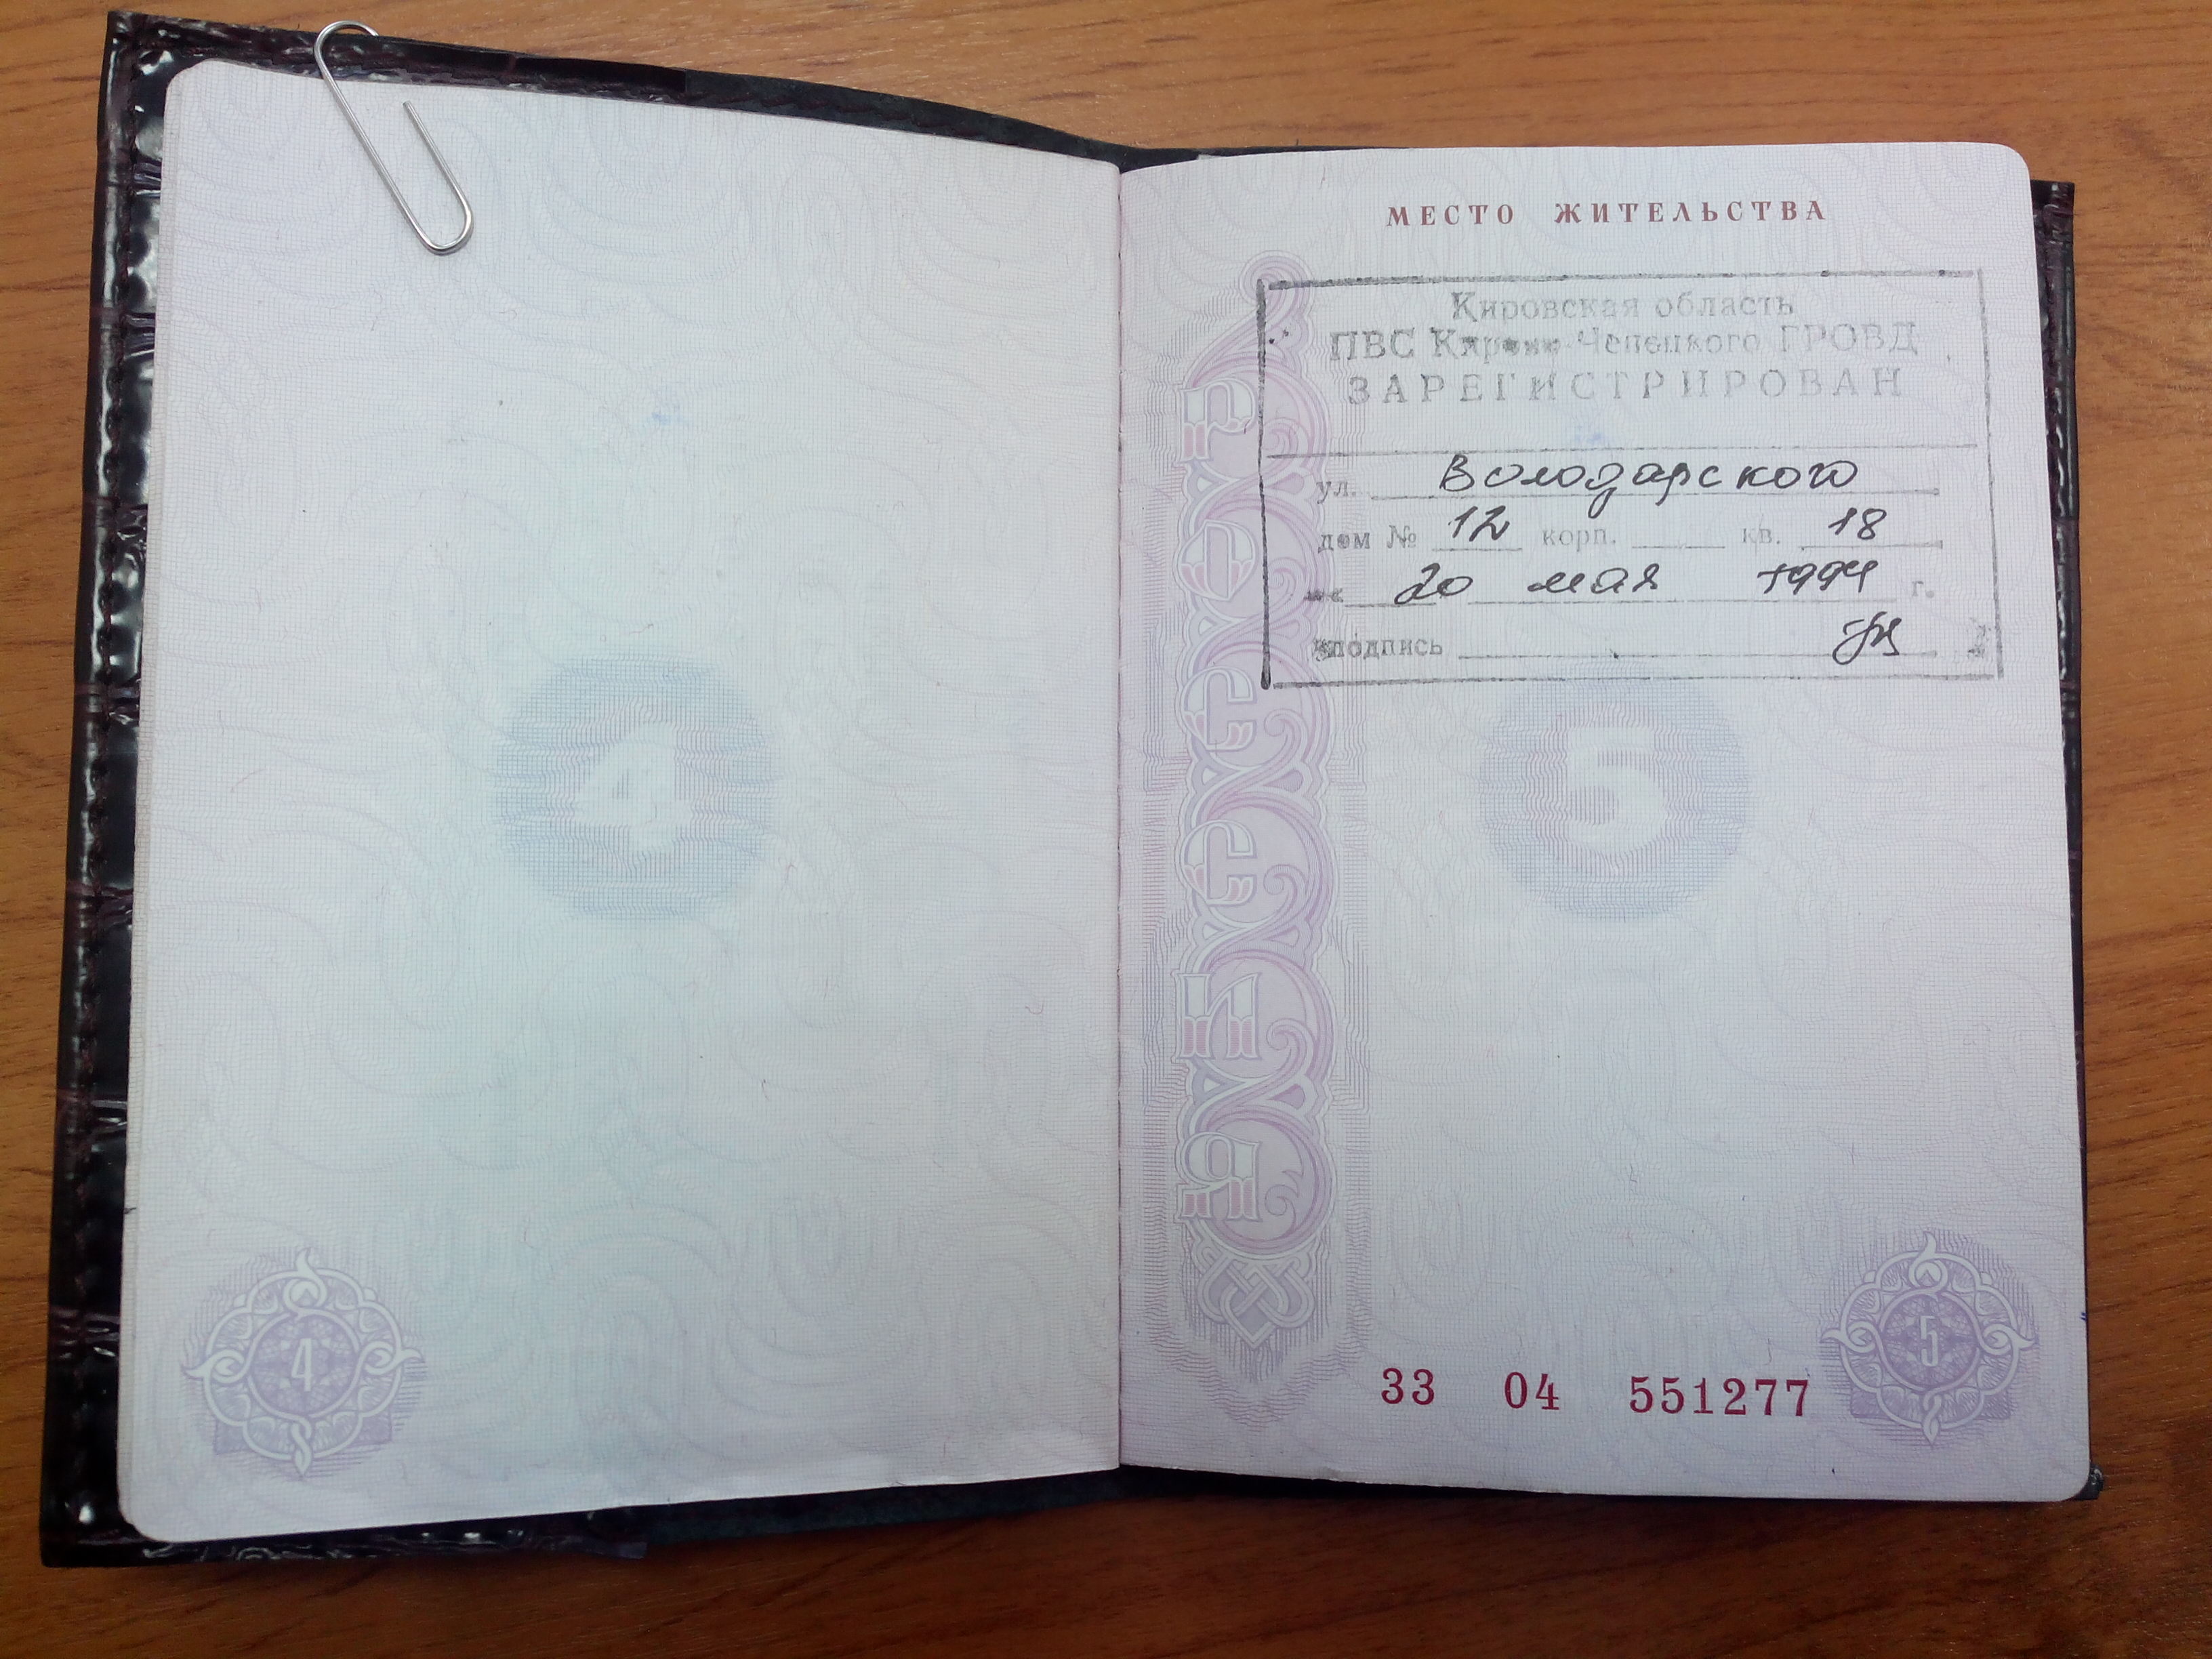 МЕСТО ЖИТЕЛЬСТВА
Кировская область
ПВС Кирово-Чепецкого ГРОВД
ЗАРЕГИСТРИРОВАН
ул. Володарского
дом № 12 корп. кв. 18
20 мая 1994 г.
подпись
4
5
РОССИЯ
4
33 04 551277
5